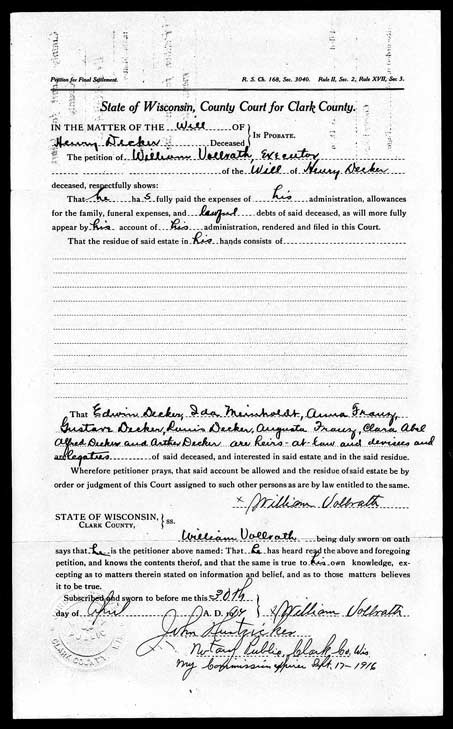 Petition for Final Settlement.
R. S. Ch. 168, Sec. 3040. Rule II, Sec. 2, Rule XVII, Sec 3.
State of Wisconsin, County Court for Clark County.
IN THE MATTER OF THE Will OF
Henry Decker Deceased
IN PROBATE.
The petition of William Vollrath, Executor
of the Will of Henry Decker
deceased, respectfully shows:
That he ha s fully paid the expenses of his administration, allowances
for the family, funeral expenses, and lawful debts of said deceased, as will more fully
appear by his account of his administration, rendered and filed in this Court.
That the residue of said estate in his hands consists of
That Edwin Decker, Ida Meinholdt, Anna Franz,
Gustave Decker, Decker, Augusta Franz, Clara Abel
Alfred Decker and Arther Decker are heirs-at-law and devisees and
legatees of said deceased, and interested in said estate and in the said residue.
Wherefore petitioner prays, that said account be allowed and the residue of said estate be by
order or judgment of this Court assigned to such other persons as are by law entitled to the same.
x William Vollrath
STATE OF WISCONSIN,
CLARK COUNTY,
ss.
William Vollrath being duly sworn on oath
says that he is the petitioner above named: That he has heard read the above and foregoing
petition, and knows the contents therof, and that the same is true to his own knowledge, ex-
cepting as to matters therein stated on information and belief, and as to those matters believes
it to be true.
Subscribed and sworn to before me this 30th
day of April A. D. x William Vollrath
John
Notary Public, Clark Co, Wis.
My Commission expires Sept. 17-1916
PUBLIC
CLARK CO.